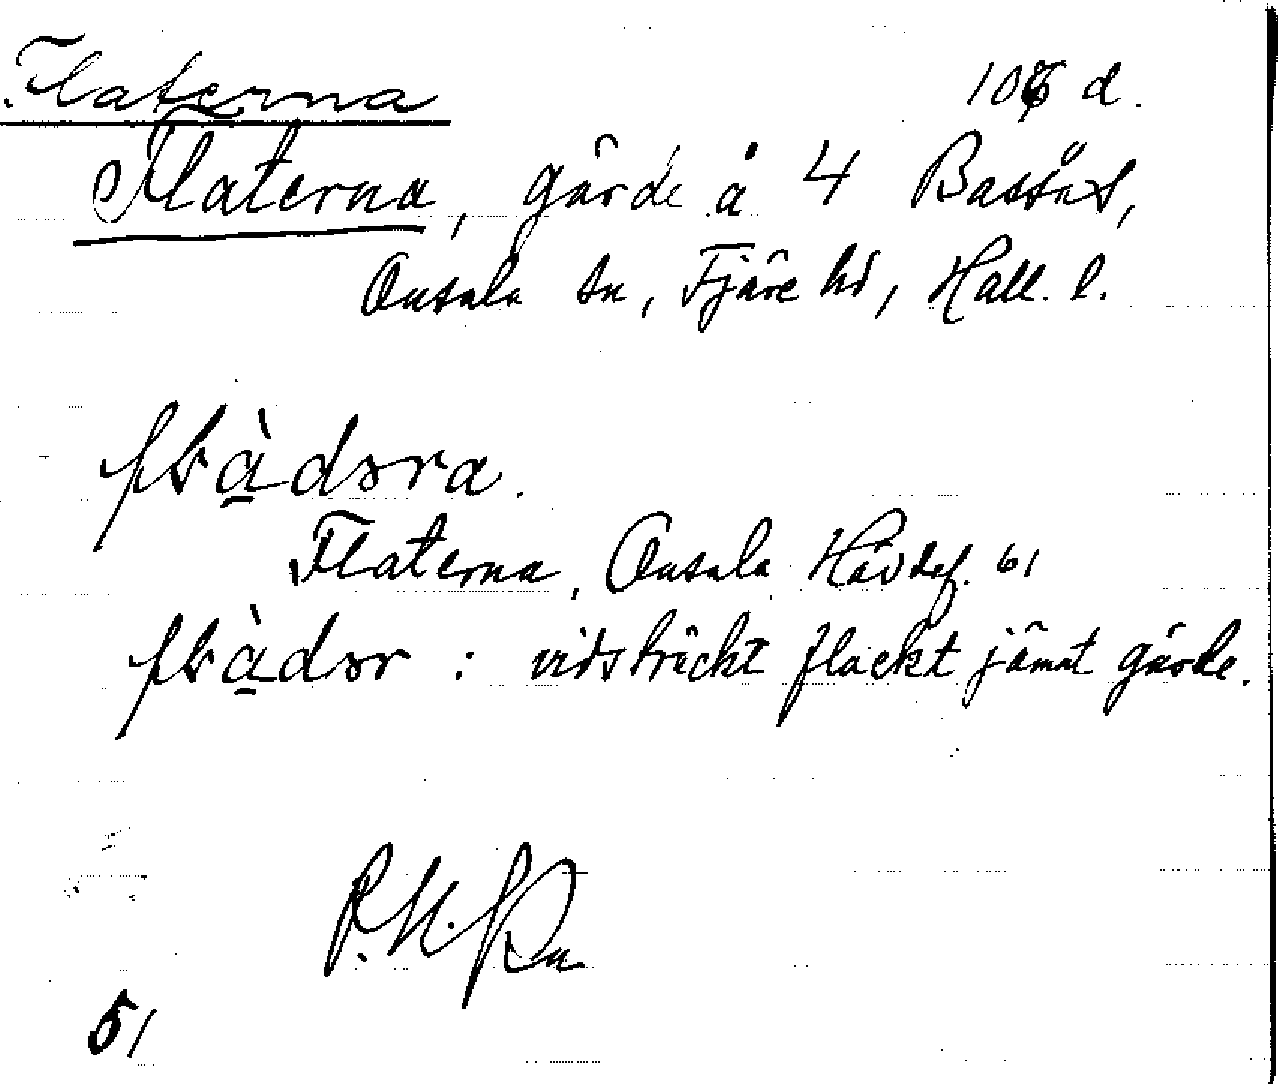 Flaterna 106 d.
Flaterna, gärde å 4 Bassås,
Onsala sn, Fjäre hd, Hall. l.
flàdəra.
Flaterna, Onsala Hävdef. 61
flàdər : vidsträckt flackt jämnt gärde.
P. N.
51